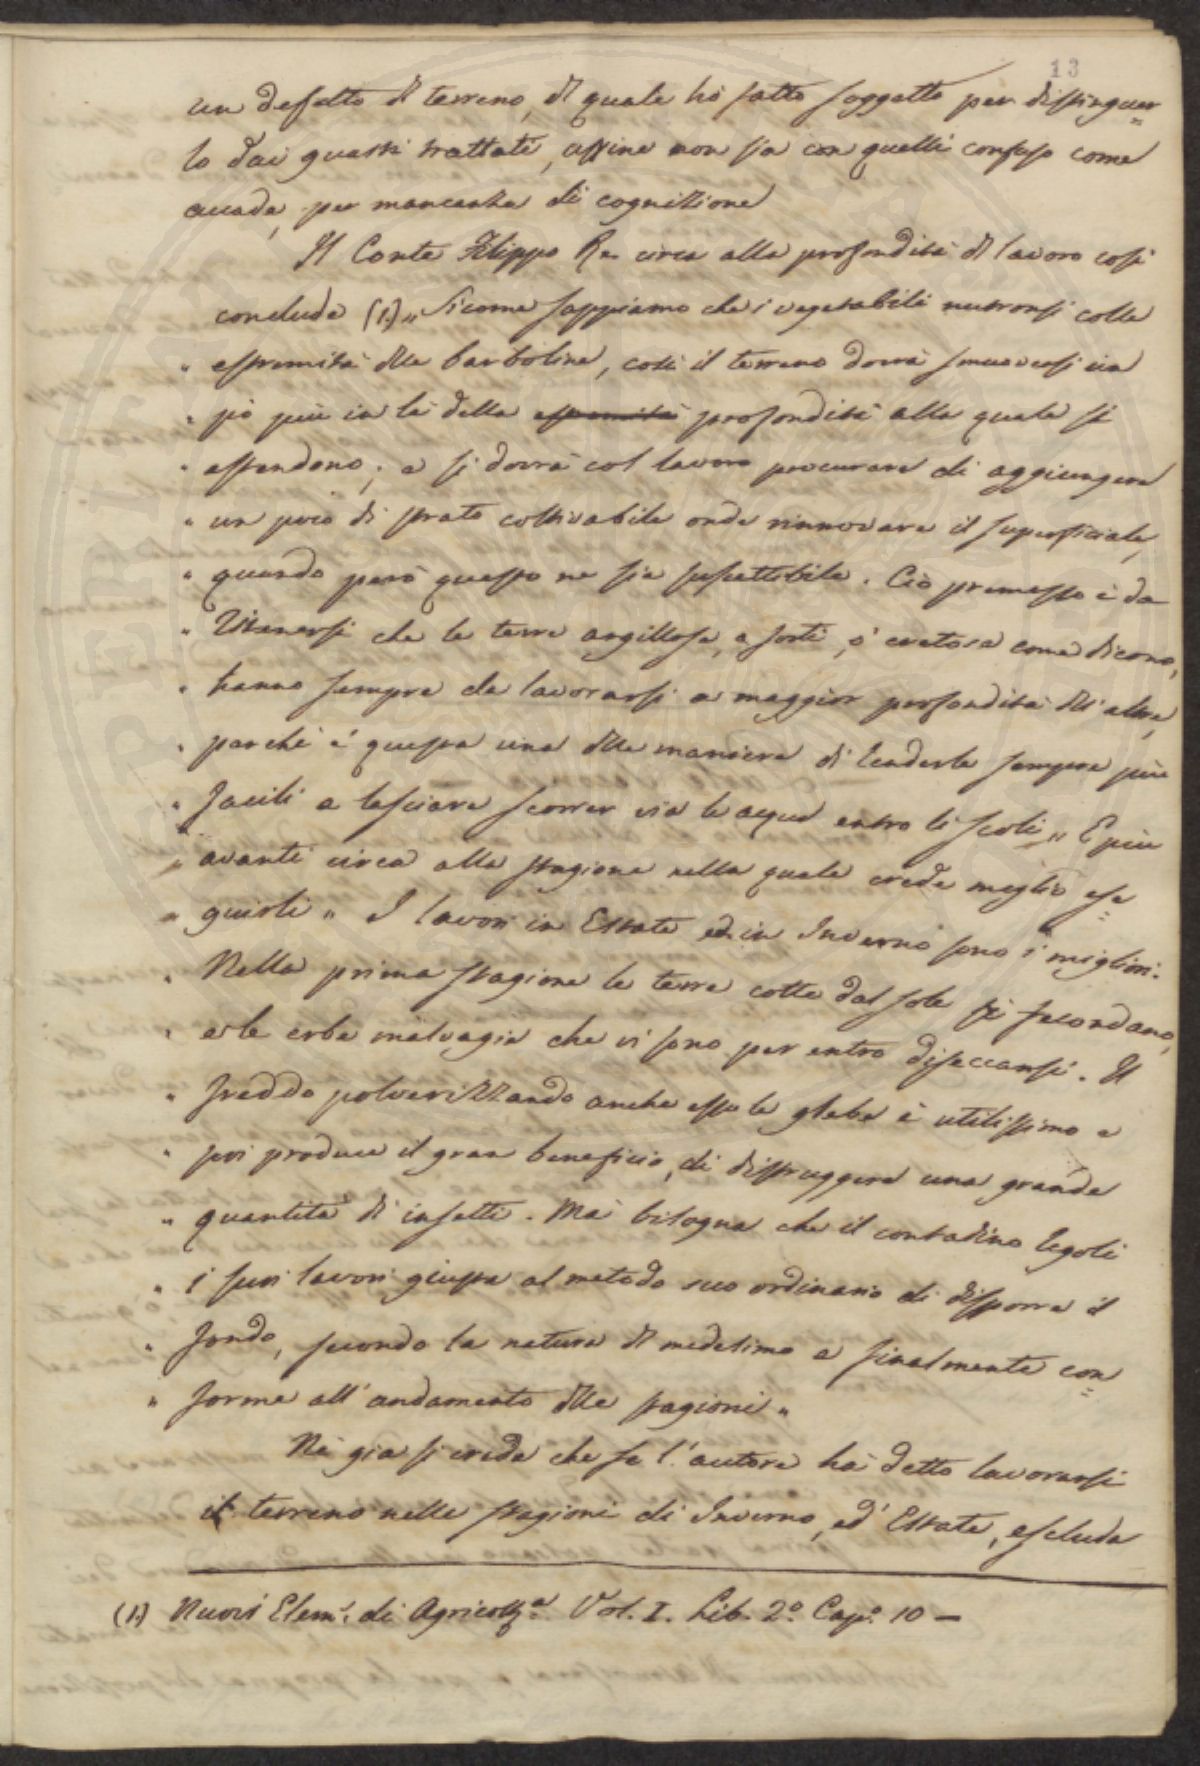 13
un deffetto del terreno, del quale hò fatto soggetto per distinguer=
lo dai guasti trattati, affine non sia con quelli confuso come
accade, per mancanza di cognizione
Il Conte Filippo Re circa alla profondità del lavoro così
conclude (1) „ Sicome sappiamo che i vegetabili nutronsi colle
„ estremità delle barboline, così il terreno dovrà smuoversi un
„ pò più in là della estremità profondità alla quale si
„ estendono; e si dovrà col lavoro procurare di aggiungere
„ un poco di strato coltivabile onde rinnovare il superficiale,
„ quando però questo ne sia suscettibile. Ciò premesso è da
„ ritenersi che le terre argillose, o forti, o' cretose come dicono,
„ hanno sempre da lavorarsi a maggior profondità dell'altre,
„ perchè è questa una delle maniere di renderle sempre più
„ facili a lasciare scorrer via le acque entro li scoli „ E più
„ avanti circa alla stagione nella quale crede meglio ese=
„ guirli „ I lavori in Estate ed in Inverno sono i migliori.
„ Nella prima stagione le terre cotte dal sole si fecondano,
„ e le erbe malvagie che vi sono per entro diseccansi. Il
„ freddo polverizzando anche esso le glebe è utilissimo e
„ poi produce il gran beneficio, di distruggere una grande
„ quantità di insetti. Mà bisogna che il contadino regoli
„ i suoi lavori giusta al metodo suo ordinario di disporre il
„ fondo, secondo la natura del medesimo e finalmente con=
„ forme all'andamento delle stagioni „
Nè già si creda che se l'autore hà detto lavorarsi
il terreno nelle stagioni di Inverno, ed' Estate, escluda
(1) Nuovi Elem.ⁱ di Agricolt.ᵃ Vol. I. Lib. 2º Capº 10 —